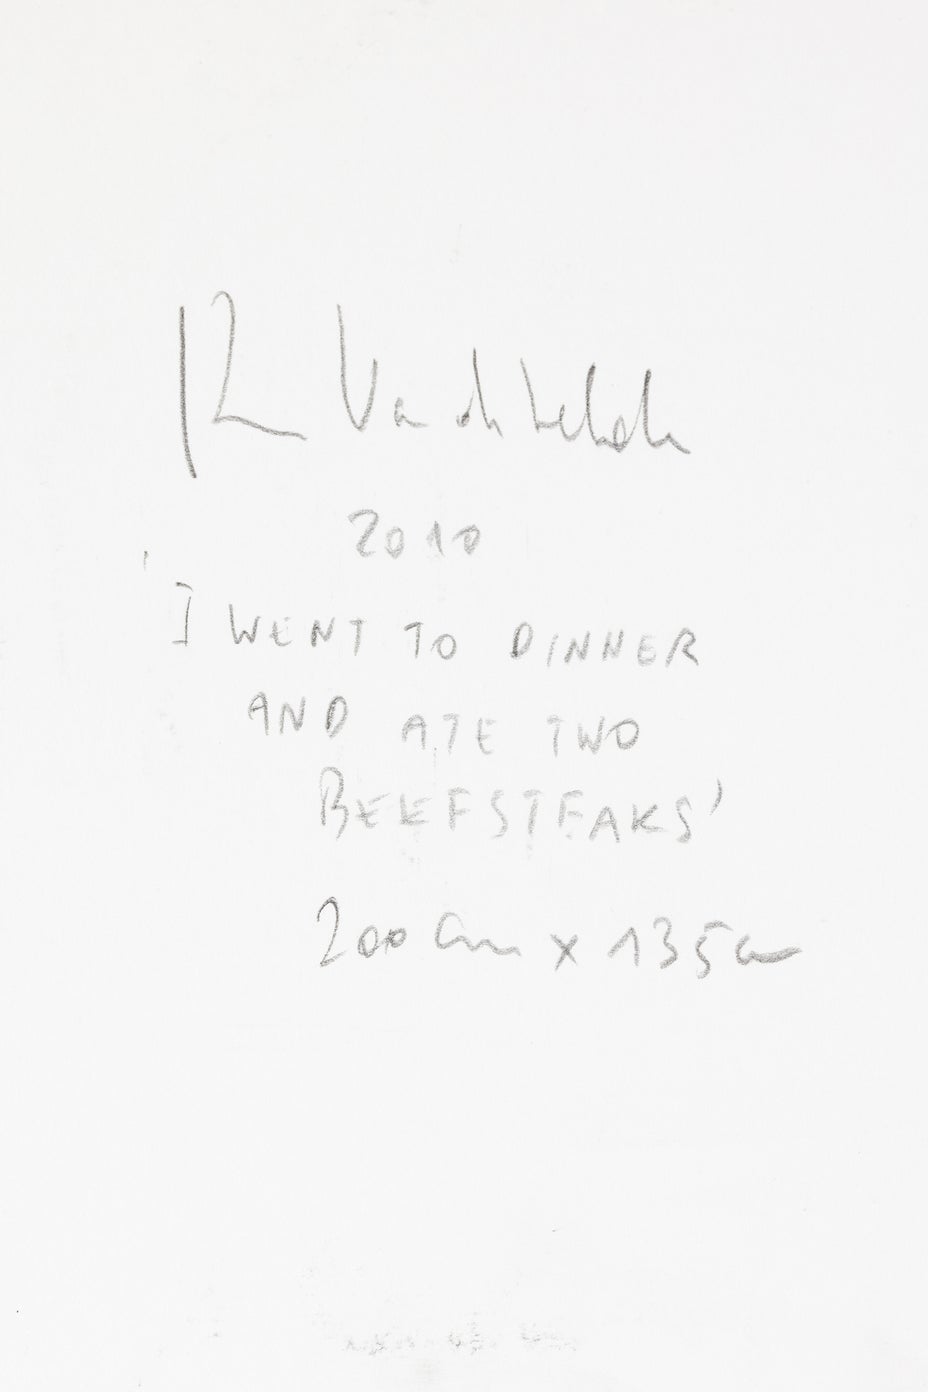 R Van de Velde
2010
'I WENT TO DINNER
AND ATE TWO
BEEFSTEAKS'
200 cm x 135 cm